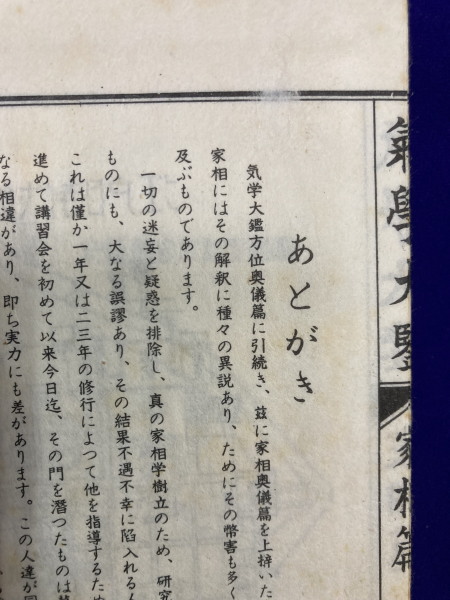 氣學大鑒
家相篇
あとがき
気学大鑑方位奥儀篇に引続き、茲に家相奥儀篇を上梓いた
家相にはその解釈に種々の異説あり、ためにその幣害も多く
及ぶものであります。
一切の迷妄と疑惑を排除し、真の家相学樹立のため、研究
ものにも、大なる誤謬あり、その結果不遇不幸に陥入れる人
これは僅か一年又は二三年の修行によつて他を指導するため
進めて講習会を初めて以来今日迄、その門を潜つたものは
なる相違があり、即ち実力にも差があります。この人達が同